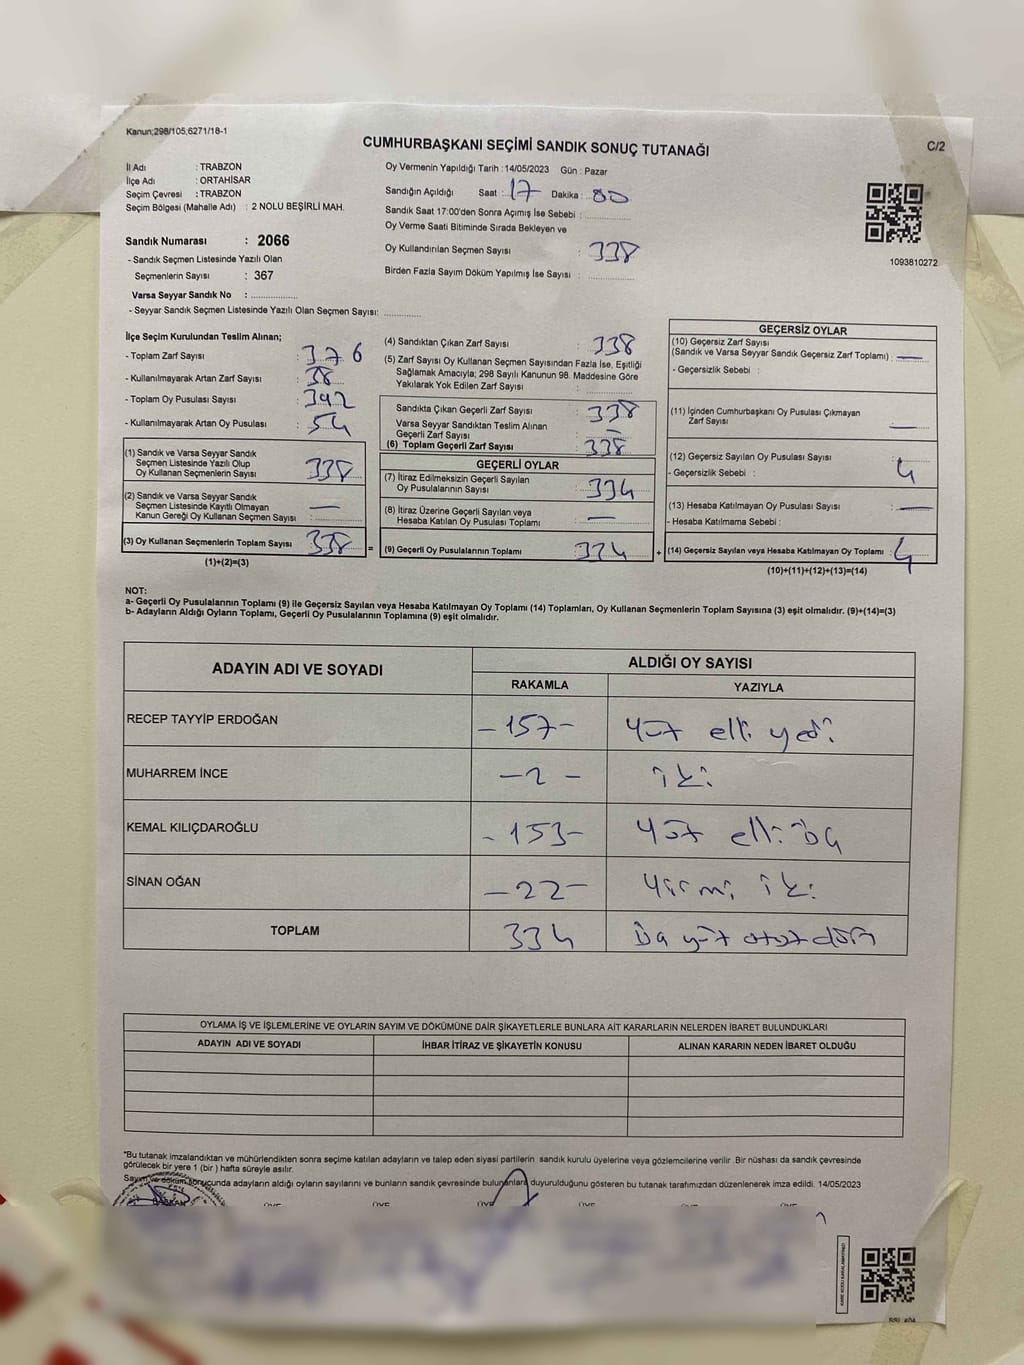 Kanun;298/105,6271/18-1
CUMHURBAŞKANI SEÇİMİ SANDIK SONUÇ TUTANAĞI
C/2
İl Adı : TRABZON
İlçe Adı : ORTAHİSAR
Seçim Çevresi : TRABZON
Seçim Bölgesi (Mahalle Adı) : 2 NOLU BEŞİRLİ MAH.
Sandık Numarası : 2066
- Sandık Seçmen Listesinde Yazılı Olan
Seçmenlerin Sayısı : 367
Varsa Seyyar Sandık No : ...............
- Seyyar Sandık Seçmen Listesinde Yazılı Olan Seçmen Sayısı: ............
Oy Vermenin Yapıldığı Tarih : 14/05/2023 Gün : Pazar
Sandığın Açıldığı Saat : 17 Dakika : 00
Sandık Saat 17:00'den Sonra Açımış İse Sebebi : ...............
Oy Verme Saati Bitiminde Sırada Bekleyen ve
Oy Kullandırılan Seçmen Sayısı : 338
Birden Fazla Sayım Döküm Yapılmış İse Sayısı : ...............
1093810272
İlçe Seçim Kurulundan Teslim Alınan;
- Toplam Zarf Sayısı : 376
- Kullanılmayarak Artan Zarf Sayısı : 38
- Toplam Oy Pusulası Sayısı : 392
- Kullanılmayarak Artan Oy Pusulası : 54
(1) Sandık ve Varsa Seyyar Sandık
Seçmen Listesinde Yazılı Olup
Oy Kullanan Seçmenlerin Sayısı : 338
(2) Sandık ve Varsa Seyyar Sandık
Seçmen Listesinde Kayıtlı Olmayan
Kanun Gereği Oy Kullanan Seçmen Sayısı : —
(3) Oy Kullanan Seçmenlerin Toplam Sayısı : 338 =
(1)+(2)=(3)
(4) Sandıktan Çıkan Zarf Sayısı : 338
(5) Zarf Sayısı Oy Kullanan Seçmen Sayısından Fazla İse, Eşitliği
Sağlamak Amacıyla; 298 Sayılı Kanunun 98. Maddesine Göre
Yakılarak Yok Edilen Zarf Sayısı :
Sandıkta Çıkan Geçerli Zarf Sayısı : 338
Varsa Seyyar Sandıktan Teslim Alınan
Geçerli Zarf Sayısı : —
(6) Toplam Geçerli Zarf Sayısı : 338
GEÇERLİ OYLAR
(7) İtiraz Edilmeksizin Geçerli Sayılan
Oy Pusulalarının Sayısı : 334
(8) İtiraz Üzerine Geçerli Sayılan veya
Hesaba Katılan Oy Pusulası Toplamı : —
(9) Geçerli Oy Pusulalarının Toplamı : 334 +
GEÇERSİZ OYLAR
(10) Geçersiz Zarf Sayısı
(Sandık ve Varsa Seyyar Sandık Geçersiz Zarf Toplamı) : —
- Geçersizlik Sebebi :
(11) İçinden Cumhurbaşkanı Oy Pusulası Çıkmayan
Zarf Sayısı : —
(12) Geçersiz Sayılan Oy Pusulası Sayısı : 4
- Geçersizlik Sebebi :
(13) Hesaba Katılmayan Oy Pusulası Sayısı : —
- Hesaba Katılmama Sebebi :
(14) Geçersiz Sayılan veya Hesaba Katılmayan Oy Toplamı : 4
(10)+(11)+(12)+(13)=(14)
NOT:
a- Geçerli Oy Pusulalarının Toplamı (9) ile Geçersiz Sayılan veya Hesaba Katılmayan Oy Toplamı (14) Toplamları, Oy Kullanan Seçmenlerin Toplam Sayısına (3) eşit olmalıdır. (9)+(14)=(3)
b- Adayların Aldığı Oyların Toplamı, Geçerli Oy Pusulalarının Toplamına (9) eşit olmalıdır.
ADAYIN ADI VE SOYADI
ALDIĞI OY SAYISI
RAKAMLA YAZIYLA
RECEP TAYYİP ERDOĞAN -157- Yüz elli yedi
MUHARREM İNCE -2- iki
KEMAL KILIÇDAROĞLU -153- Yüz elli üç
SİNAN OĞAN -22- Yirmi iki
TOPLAM 334 üç yüz otuz dört
OYLAMA İŞ VE İŞLEMLERİNE VE OYLARIN SAYIM VE DÖKÜMÜNE DAİR ŞİKAYETLERLE BUNLARA AİT KARARLARIN NELERDEN İBARET BULUNDUKLARI
ADAYIN ADI VE SOYADI İHBAR İTİRAZ VE ŞİKAYETİN KONUSU ALINAN KARARIN NEDEN İBARET OLDUĞU
*Bu tutanak imzalandıktan ve mühürlendikten sonra seçime katılan adayların ve talep eden siyasi partilerin sandık kurulu üyelerine veya gözlemcilerine verilir .Bir nüshası da sandık çevresinde
görülecek bir yere 1 (bir ) hafta süreyle asılır.
Sayım ve döküm sonucunda adayların aldığı oyların sayılarını ve bunların sandık çevresinde bulunanlara duyurulduğunu gösteren bu tutanak tarafımızdan düzenlenerek imza edildi. 14/05/2023
BAŞKAN ÜYE ÜYE ÜYE ÜYE ÜYE ÜYE